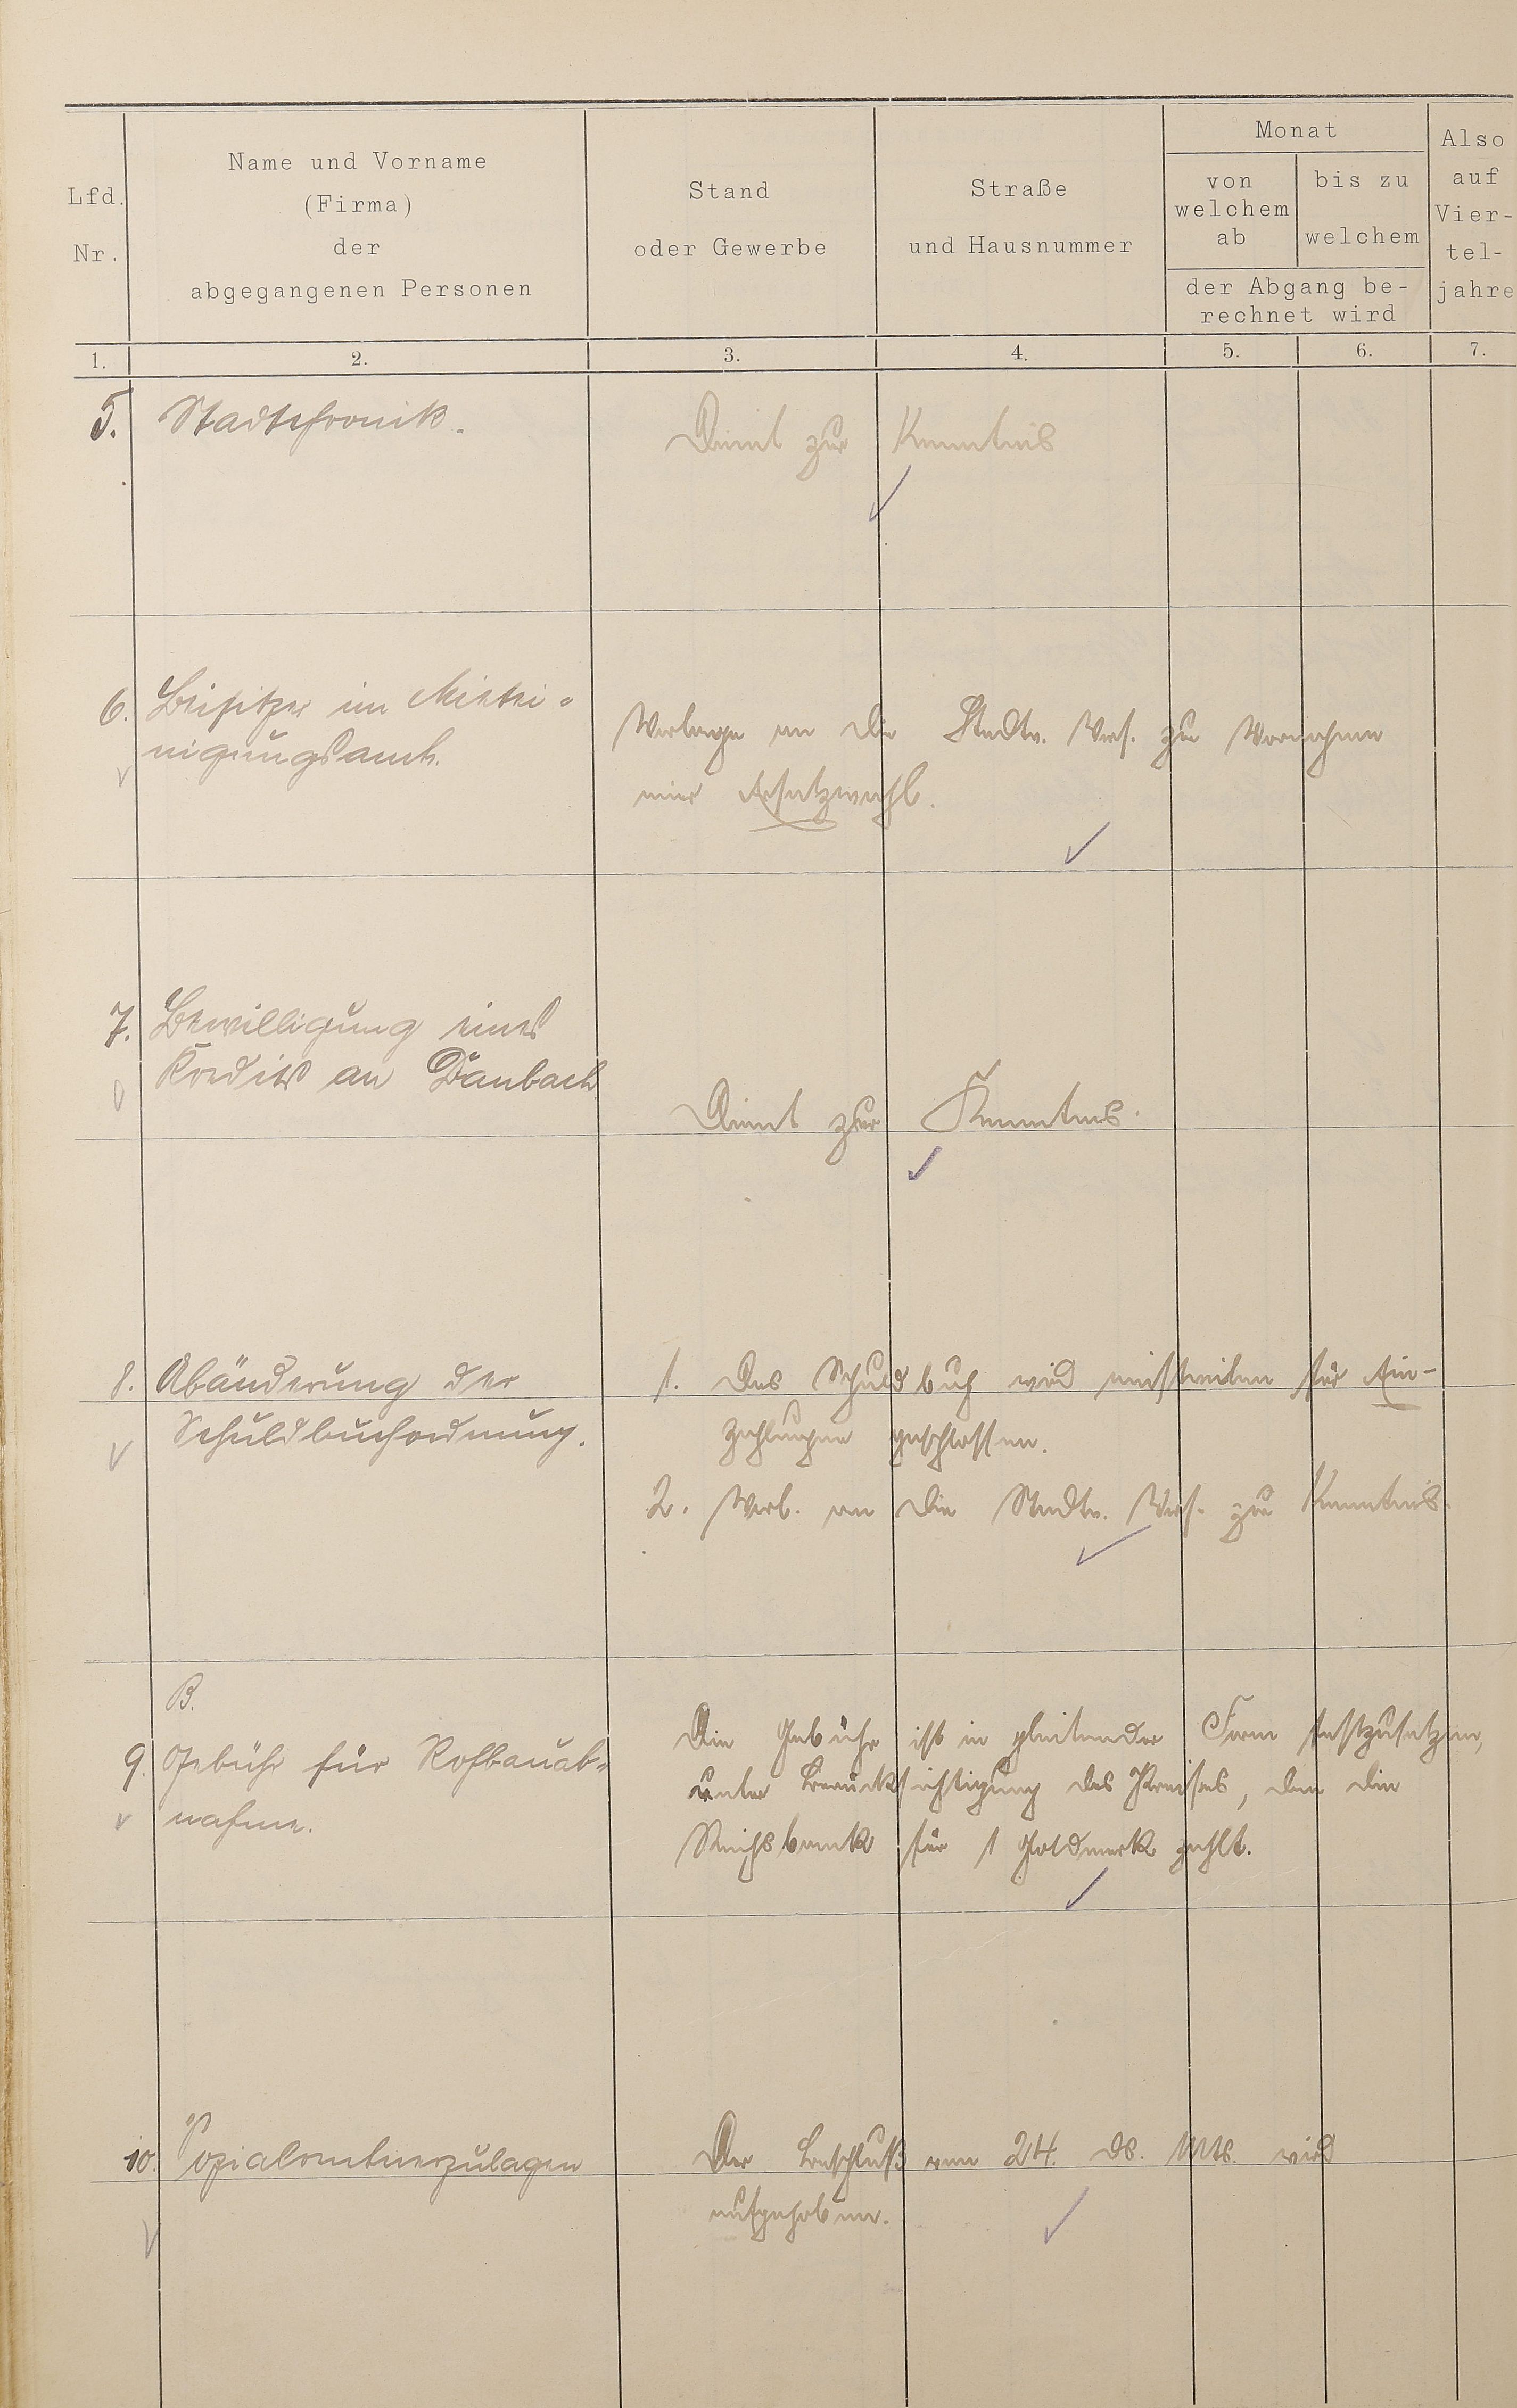 Lfd.
Nr.
Name und Vorname
(Firma)
der
abgegangenen Personen
Stand
oder Gewerbe
Straße
und Hausnummer
Monat
von
welchem
ab
bis zu
welchem
der Abgang be-
rechnet wird
Also
auf
Vier-
tel-
jahre
1. 2. 3. 4. 5. 6. 7.
5. Stadtchronik.
Dient zur Kenntnis
6. Beisitzer im Mietei-
nigungsamt.
Vorlage an die Stadtv. Vers. zur Vornahme
einer Ersatzwahl.
7. Bewilligung eines
Kredits an Danbach
Dient zur Kenntnis.
8. Abänderung der
Schuldbuchordnung.
1. Das Schuldbuch wird einstweilen für Ein-
zahlungen geschlossen.
2. Vorl. an die Stadtv. Vers. zur Kenntnis.
B.
9. Gebühr für Rohbauab-
nahme.
Die Gebühr ist in gleitender Form festzusetzen,
unter Berücksichtigung des Preises, den die
Reichsbank für 1 Goldmark zahlt.
10. Sozialrentnerzulagen
Der Beschluß vom 24. ds. Mts. wird
aufgehoben.